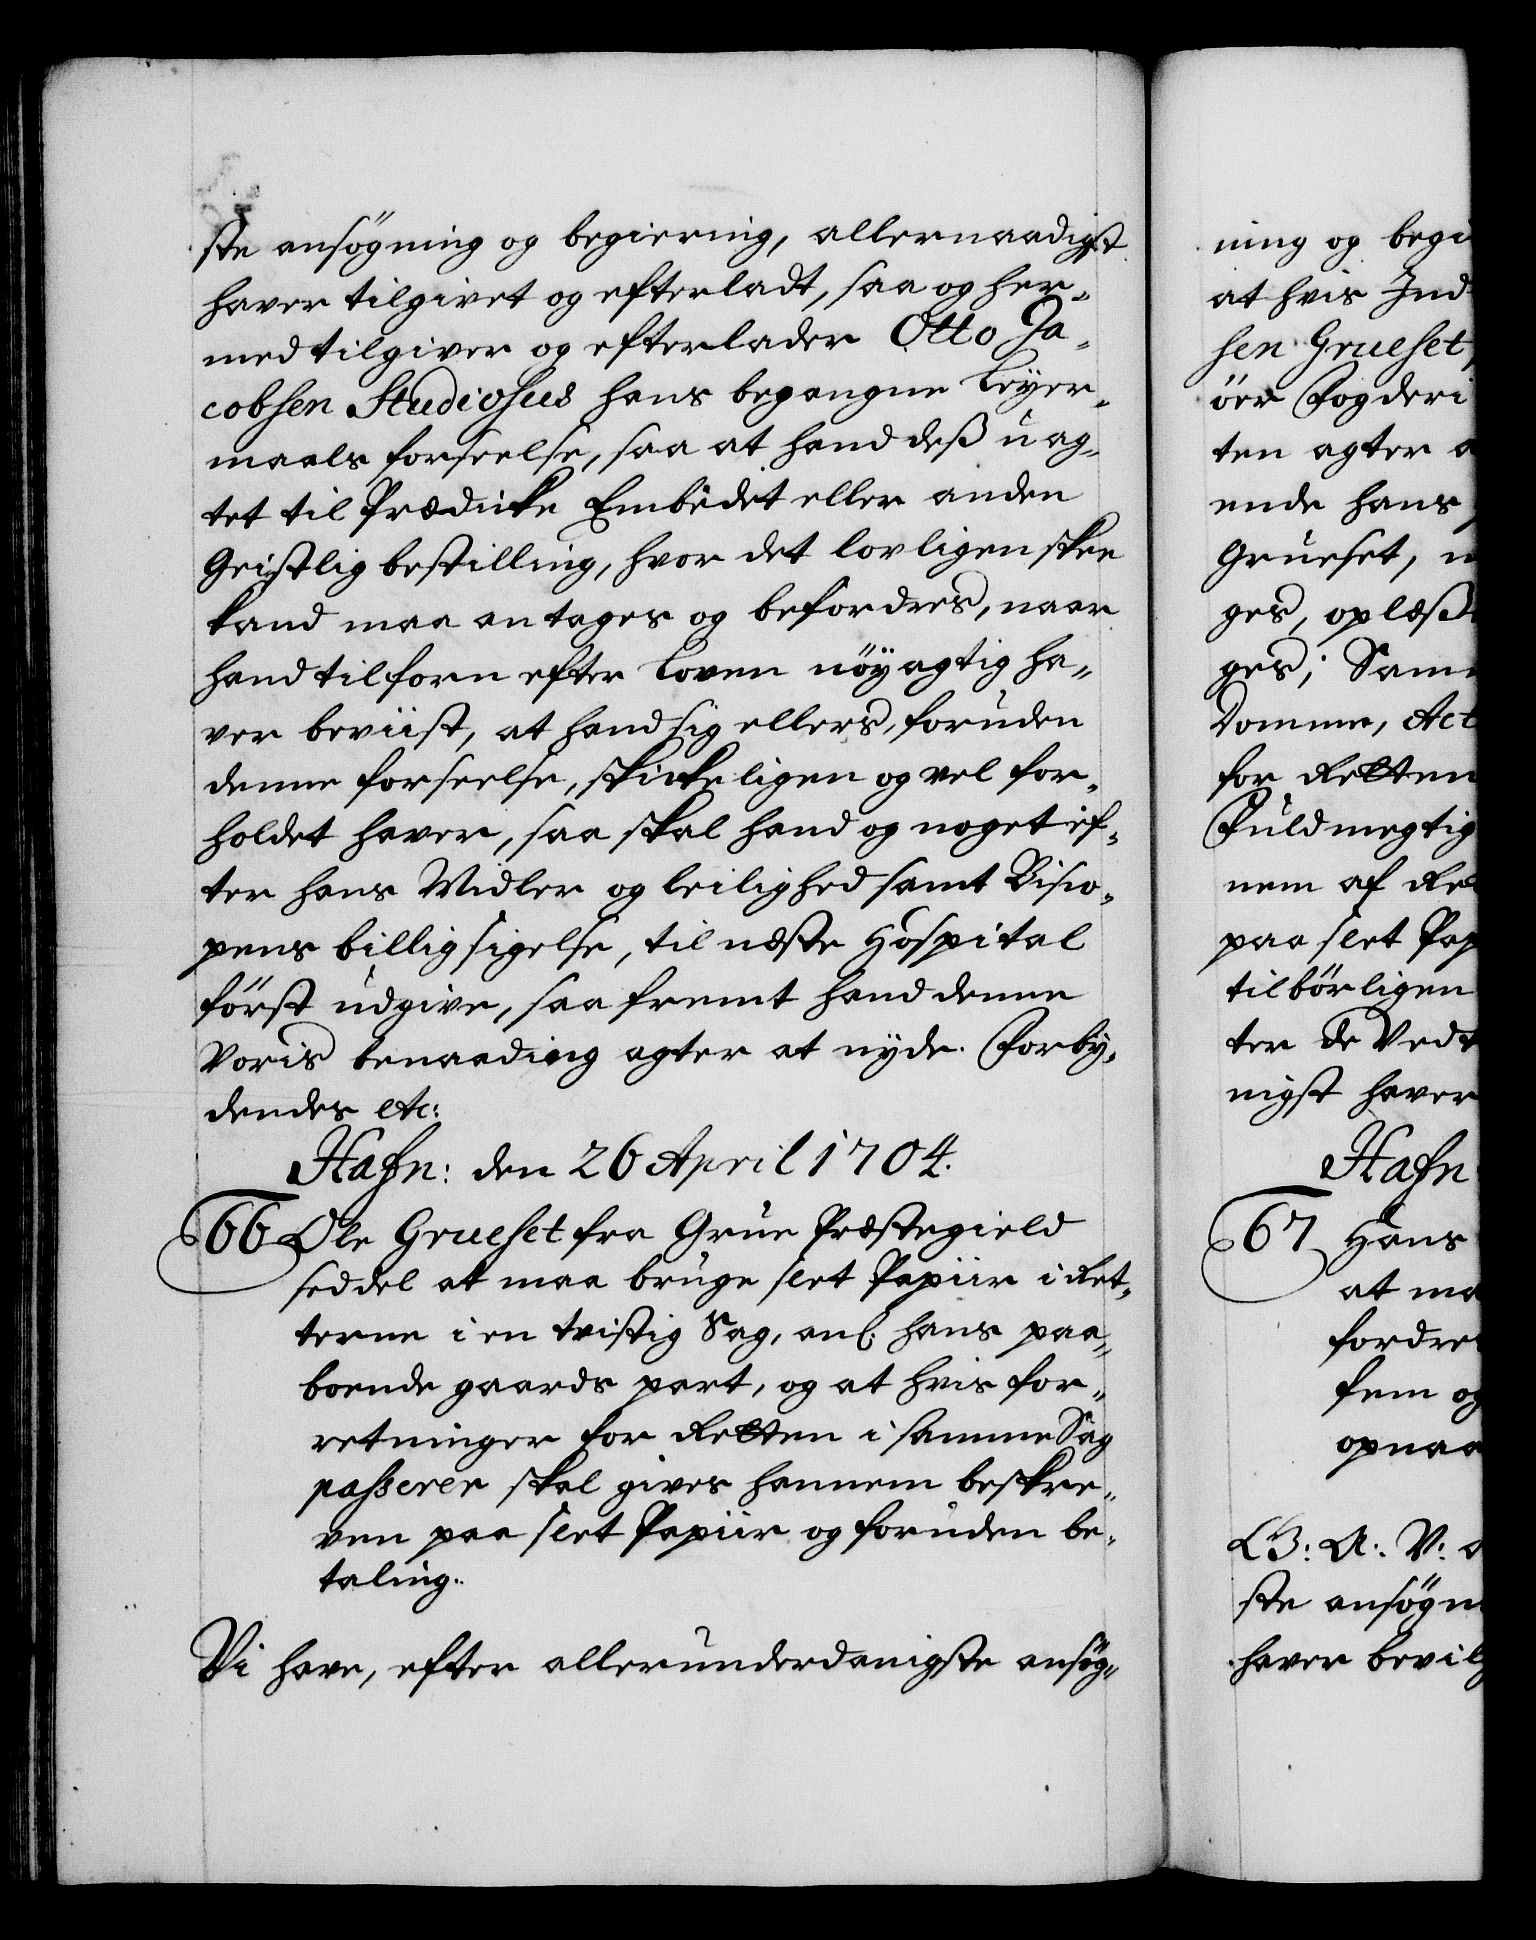 ste ansøgning og begiering, allernaadigst
haver tilgivet og efterladt, saa og her-
med tilgiver og efterlader Otto Ja-
cobsen Studiosus hans begangne Leyer-
maals forseelse, saa at hand deß uag-
tet til Prædicke Embedet eller anden
Geistlig bestilling, hvor det lovligen skee
kand maa antages og befordres, naar
hand tilforn efter Loven nøyagtig ha-
ver beviist, at hand sig ellers, foruden
denne forseelse, skickeligen og vel for-
holdet haver, saa skal hand og noget ef-
ter hans Midler og leilighed samt Bisco-
pens billigsigelse, til næste Hospital
først udgive, saafremt hand denne
Voris benaading agter at nyde. Forby-
dendes etc:
Hafn: den 26 April 1704.
66 Ole Grueset fra Grue Præstegield
seddel at maa bruge slet Papiir i Ret-
terne i en tvistig Sag, anl: hans paa-
boende gaards part, og at hvis for-
retninger for Retten i samme Sag
passerer skal gives hannem beskre-
ven paa slet Papiir og foruden be-
taling.
Vi have, efter allerunderdanigste ansøg-
ning og begi
at hvis Ind
sen Grueset,
öer Fogderi
ten agter a
ende hans
Grueset,
ges, oplæst
ges; Sam
Domme, Act
for Retten
Fuldmegtig
nem af Re
paa slet Pap
tilbørligen
ter de Vedt
nigst haver
Hafn
67 Hans
at ma
fordre
fem og
opnaa
G: A: V:
ste ansøgn
haver bevilg